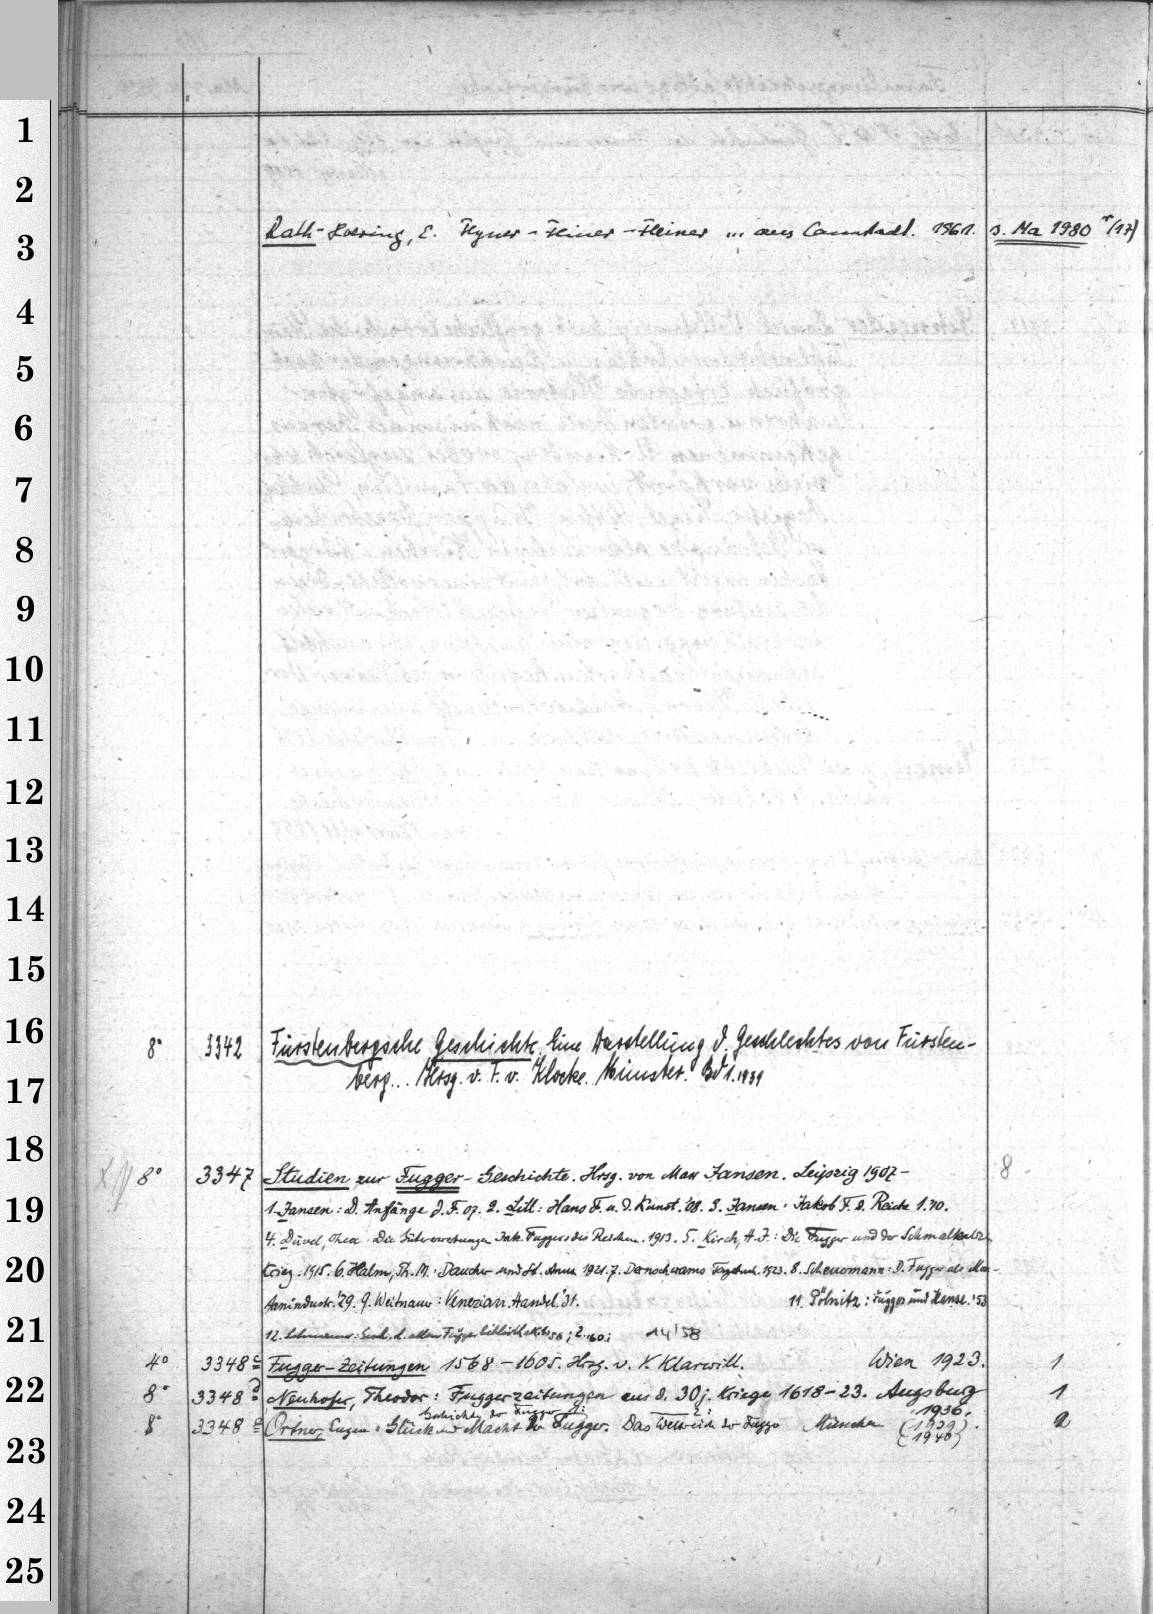 1
2
3 Rath-Hoering, E. Hyner-Heiner-Heiner ... aus Cannstadt. 1961. s. Ma 1980 r (17)
4
5
6
7
8
9
10
11
12
13
14
15
16 8° 3342 Fürstenbergsche Geschichte. Eine Darstellung d. Geschlechtes von Fürsten-
17 berg... Hrsg. v. F. v. Klocke. Münster. Bd 1. 1939
18
8° 3347 Studien zur Fugger-Geschichte. Hrsg. von Max Jansen. Leipzig 1907- 8
19 1. Jansen: D. Anfänge d. F. 07. 2. Lill: Hans F. u. d. Kunst. '08. 3. Jansen: Jakob F. d. Reiche 1.'10.
4. Düvel, Thea: Die Gütererwerbungen Jak. Fuggers des Reichen. 1913. 5. Kirch, H. J.: Die Fugger und der Schmalkald.
20 Krieg. 1915. 6. Halm, Ph. M.: Daucher und St. Anna 1921. 7. Dernschwams Tagebuch. 1923. 8. Scheuermann: D. Fugger als Mon-
tanindustr. '29. 9. Weitnauer: Venezian. Handel. '31. 11. Pölnitz: Fugger und Hanse. '53
21 12. Lehmann: Gesch. d. alten Fuggerbibliotheken 1.56; 2.'60; 14 '58
4° 3348 c Fugger-Zeitungen 1568-1605. Hrsg. v. V. Klarwill. Wien 1923. 1
22 8° 3348 d Neuhofer, Theodor: Fuggerzeitungen aus d. 30j. Kriege 1618-23. Augsburg 1936. 1
Geschichte der Fugger 1: 2:
8° 3348 e Ortner, Eugen: Glück und Macht der Fugger. Das Weltreich der Fugger München (1939) (1940). 2
23
24
25